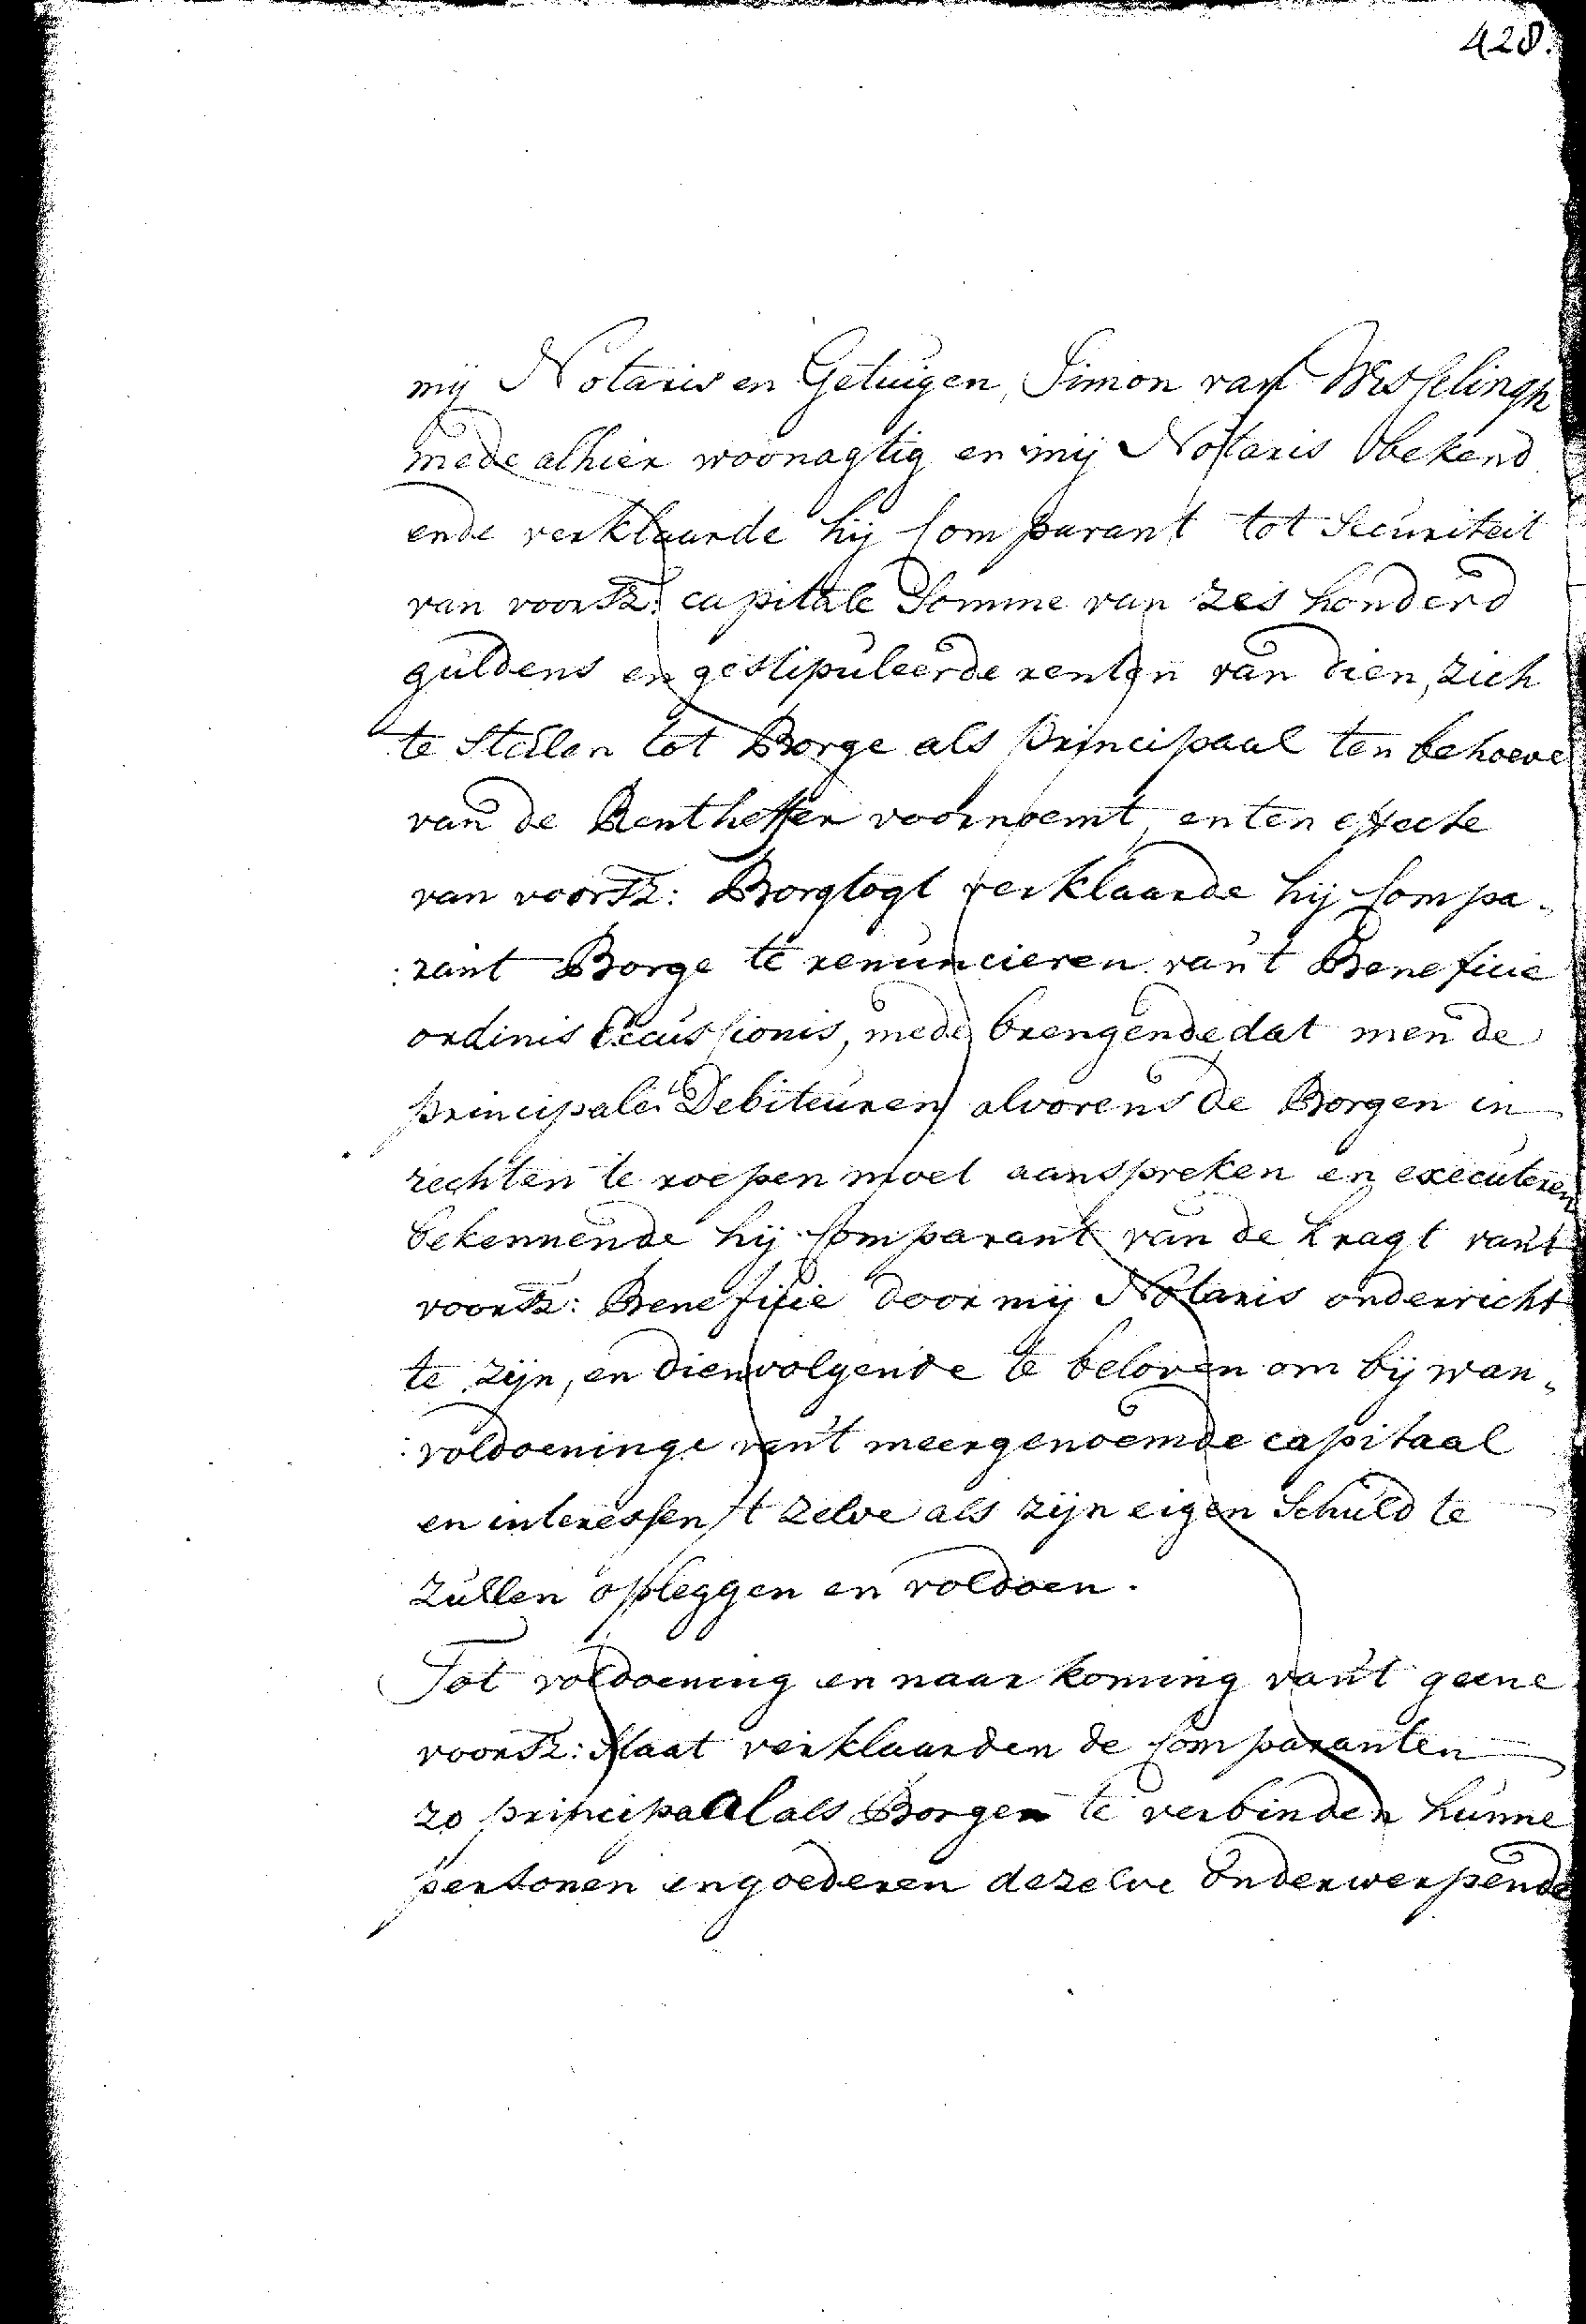 428.
mij Notaris en Getuigen, Simon van Wisselingh
mede alhier woonagtig en mij Notaris bekend
ende verklaarde hij Comparant tot Securiteit
van voorsz: capitale Somme van zes honderd
guldens en gestipuleerde renten van dien, zich
te Stellen tot Borge als Principaal ten behoeve
van de Rentheffer voornoemt, en ten effecte
van voorsz: Borgtogt verklaarde hij Compa„
:rant Borge te renuncieren van't Beneficie
ordinis Excussionis, mede brengende dat men de
principale Debiteuren alvorens de Borgen in
rechten te roepen moet aanspreken en executeren
bekennende hij Comparant van de kragt van't
voorsz: Beneficie door mij Notaris onderricht
te zijn, en dienvolgende te beloven om bij wan„
:voldoeninge van't meergenoemde capitaal
en interessen 't zelve als zijn eigen Schuld te
zullen opleggen en voldoen.
Tot voldoening en naarkoming van't geene
voorsz: Staat verklaarden de Comparanten
zo principaal als Borgen te verbinden hunne
persoonen en goederen dezelve onderwerpende